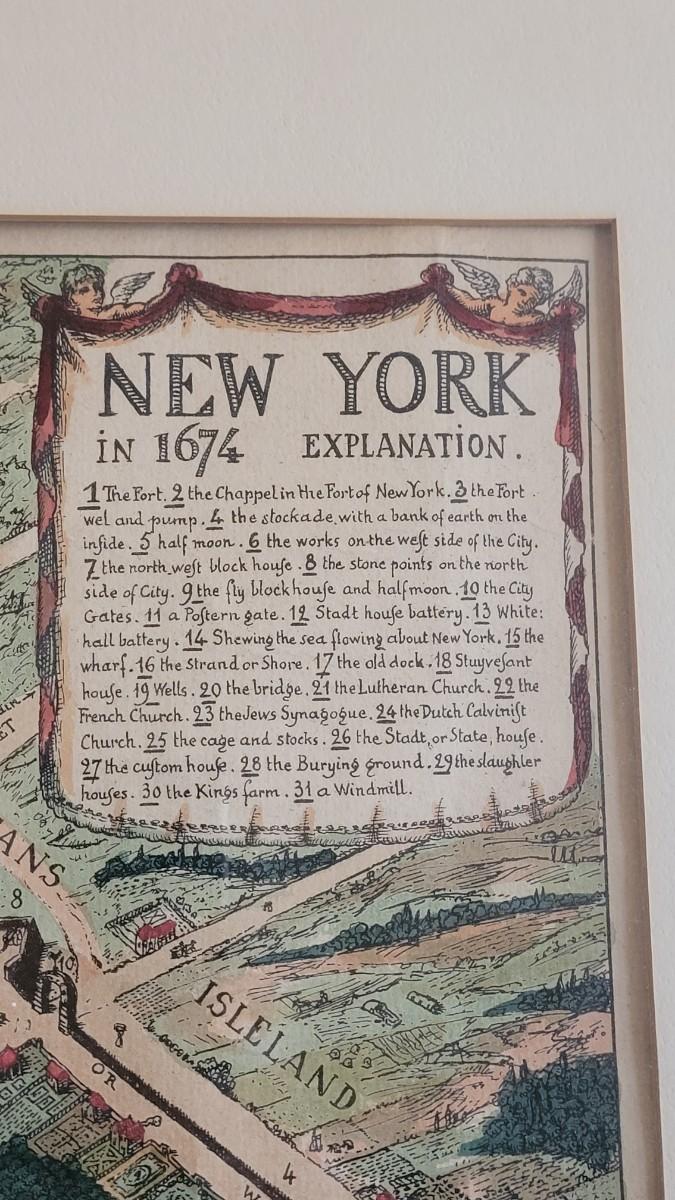 NEW YORK
iN 1674 EXPLANATION.
1 The Fort. 2 the Chappel in the Fort of New York. 3 the Fort
wel and pump. 4 the stockade, with a bank of earth on the
inſide. 5 half moon. 6 the works on the weſt side of the City.
7 the north weſt block houſe. 8 the stone points on the north
side of City. 9 the fly blockhouſe and halfmoon. 10 the City
Gates. 11 a Poſtern gate. 12 Stadt houſe battery. 13 White:
hall battery. 14 Shewing the sea flowing about New York. 15 the
wharf. 16 the Strand or Shore. 17 the old dock. 18 Stuyveſant
houſe. 19 Wells. 20 the bridge. 21 the Lutheran Church. 22 the
French Church. 23 the Jews Synagogue. 24 the Dutch Calviniſt
Church. 25 the cage and stocks. 26 the Stadt, or State, houſe.
27 the cuſtom houſe. 28 the Burying ground. 29 the slaughter
houſes. 30 the Kings farm. 31 a Windmill.
ET
ANS
8
10
ISLELAND
OR
4
W